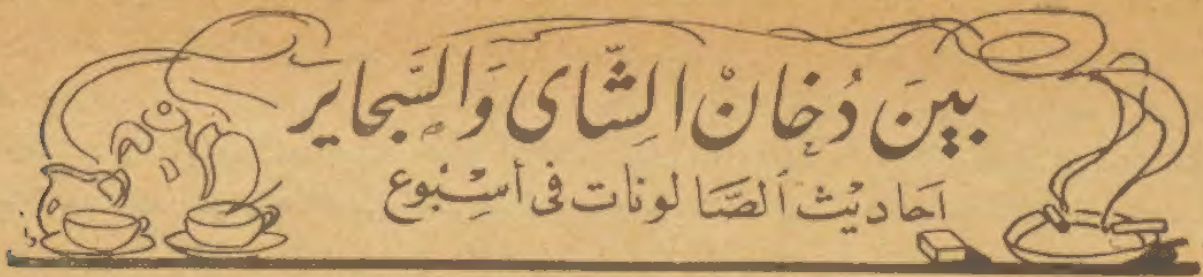 بينَ دُخانْ الشّاى وَالسَّجاير
احاديْث ٱلصَّالونات فى أسِبْوع